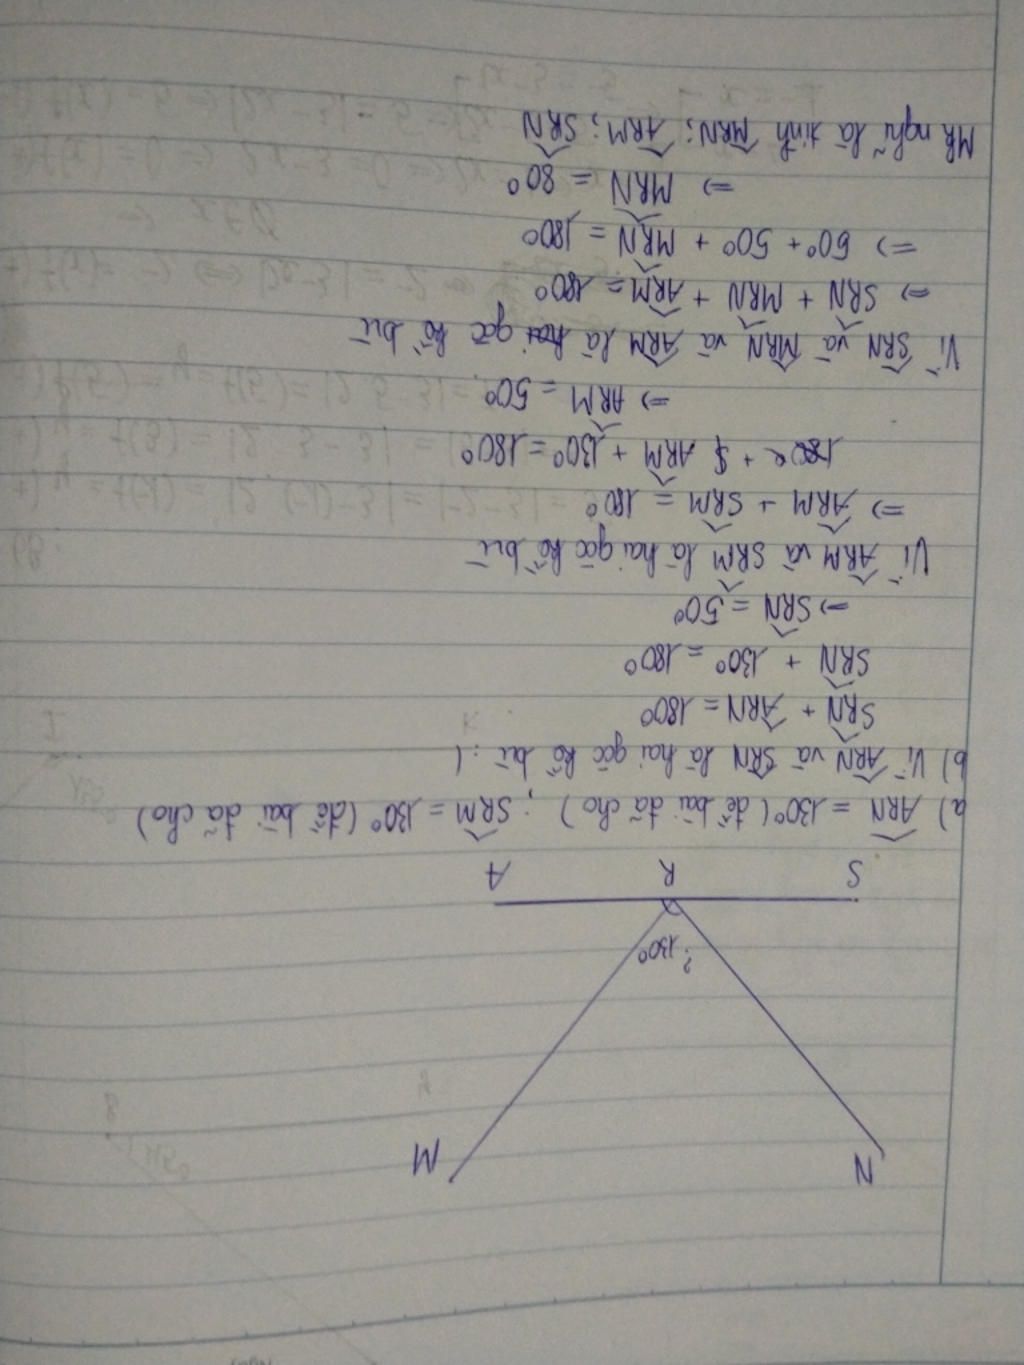 N
M
? 130°
S R A
a) ARN = 130° (đề bài đã cho) ; SRM = 130° (đề bài đã cho)
b) Vì ARN và SRN là hai góc kề bù : (
SRN + ARN = 180°
SRN + 130° = 180°
=> SRN = 50°
Vì ARM và SRM là hai góc kề bù
=> ARM + SRM = 180°
ARM + 130° = 180°
=> ARM = 50°
Vì SRN và MRN và ARM là hai góc kề bù
=> SRN + MRN + ARM = 180°
=> 50° + 50° + MRN = 180°
=> MRN = 80°
nghĩ là tính MRN; ARM; SRN